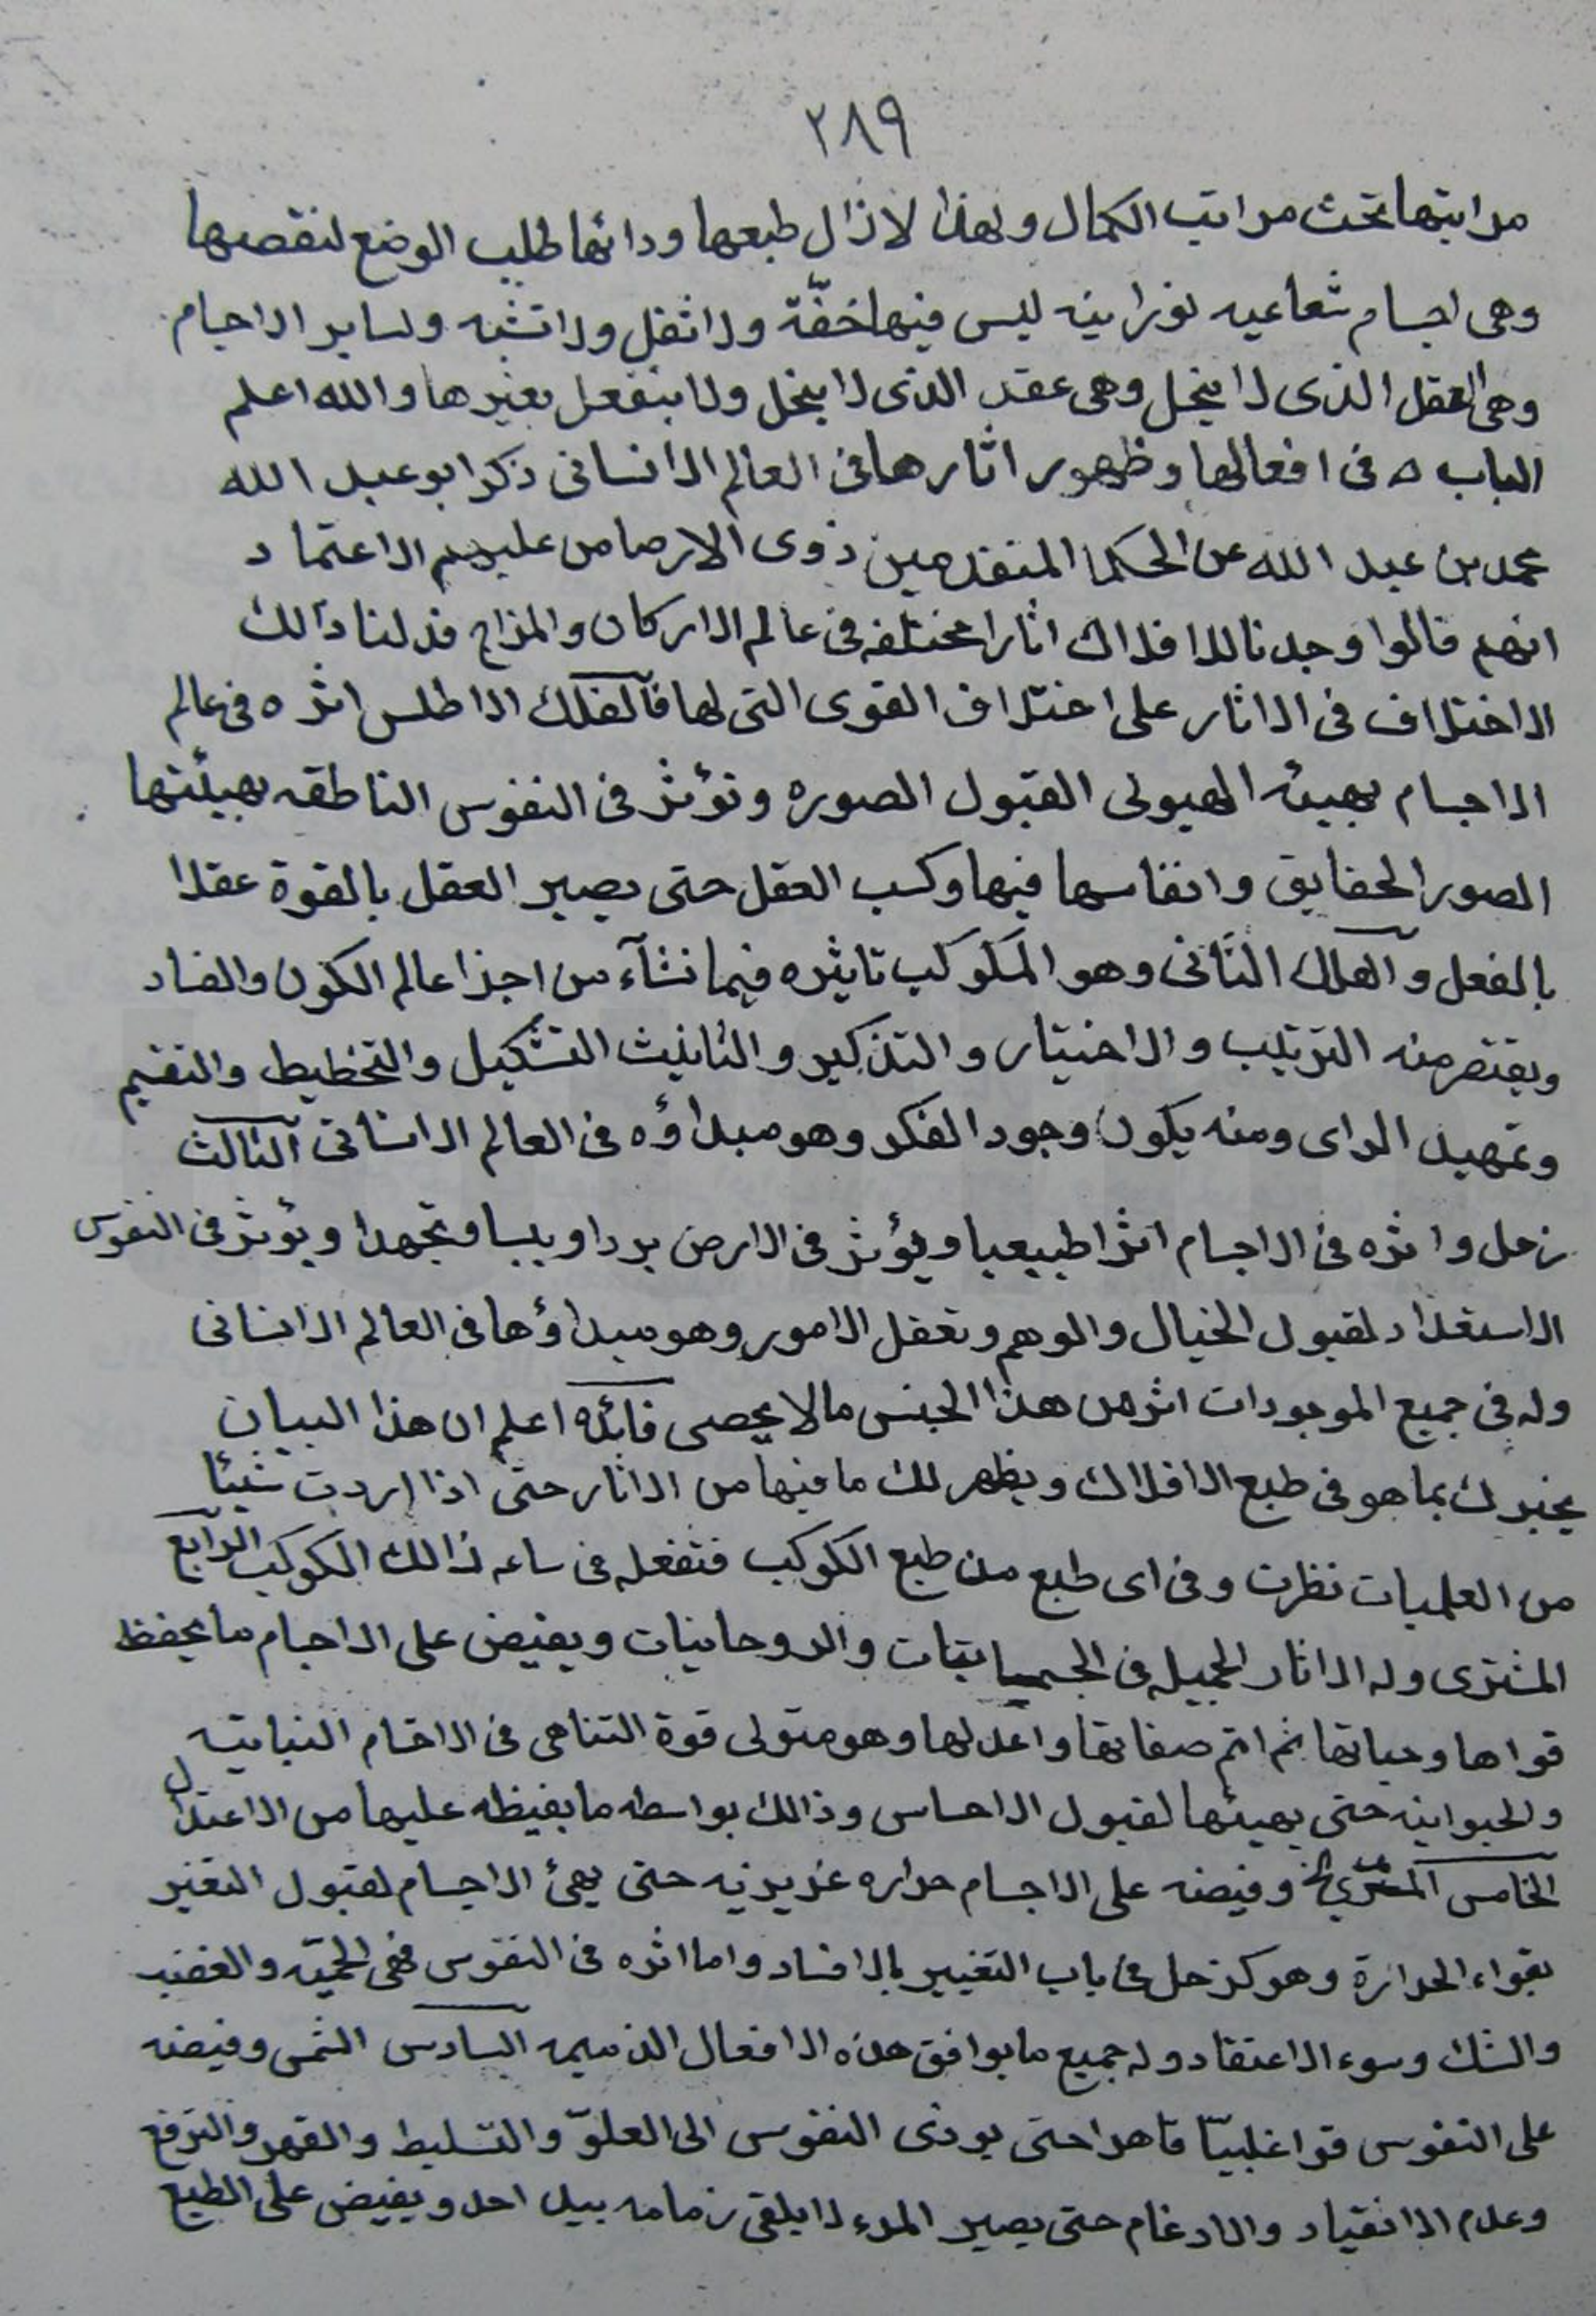 ٢٨٩
مراتبها تحت مراتب الكمال ولهذا لازال طبعها ودائما طلب الوضع لنقصها
وهى اجسام شعاعيه نورانيه ليس فيها خفّة ولا ثقل ولا تشبه ولساير الاجسام
وهى العقل الذى لا ينحل وهى عقد الذى لا ينحل ولا ينفعل بغيرها والله اعلم
الباب ٥ فى افعالها وظهور اثارها فى العالم الانسانى ذكر ابو عبد الله
محمد بن عبد الله عن الحكما المتقدمين ذوى الارصا من عليهم الاعتماد
انهم قالوا وجدنا للافلاك اثارا مختلفه فى عالم الاركان والمزاج فدلنا ذالك
الاختلاف فى الاثار على اختلاف القوى التى لها فالفلك الاطلس اثره فى عالم
الاجسام بهيئه الهيولى القبول الصوره وتؤثر فى النفوس الناطقه بهيئتها
الصور الحقايق وانفاسها فيها وكسب العقل حتى يصير العقل بالقوة عقلا
بالفعل والفلك الثانى وهو المكوكب تاثيره فيما نشآء من اجزا عالم الكون والفساد
ويقتصر منه الترتيب والاختيار والتذكير والتانيث التشكيل والتخطيط والتقسيم
وتمهيد الراى ومنه يكون وجود الفكر وهو مبداؤه فى العالم الانسانى الثالث
زحل واثره فى الاجسام اثرا طبيعيا ويؤثر فى الارض بردا ويبسا وتجمدا ويؤثر فى النفوس
الاستعداد لقبول الخيال والوهم وتعقل الامور وهو مبداؤها فى العالم الانسانى
وله فى جميع الموجودات اثر من هذا الجنس مالا يحصى فائده اعلم ان هذا البيان
يخبرك بما هو فى طبع الافلاك ويظهر لك ما فيها من الاثار حتى اذا اردت شيئا
من العلميات نظرت وفى اى طبع من طبع الكوكب فتفعله فى ساعه ذالك الكوكب الرابع
المشترى وله الاثار الجميله فى الجسمانيات والروحانيات ويفيض على الاجسام ما يحفظ
قواها وحياتها ثم اتم صفاتها واعدلها وهو متولى قوة التناهى فى الاقسام النباتيه
والحيوانيه حتى يهيئها لقبول الاحساس وذالك بواسطه ما يفيظه عليها من الاعتدال
الخامس المريخ وفيضه على الاجسام حراره غزيزيه حتى يهئ الاجسام لقبول التغير
بقواء الحرارة وهو كزحل فى باب التغيير بالافساد واما اثره فى النفوس فهى الحميّه والغضب
والشك وسوء الاعتقاد وله جميع ما يوافق هذه الافعال الذميمه السادس الشمس وفيضه
على النفوس قوا غلبيّا قاهرا حتى يودى النفوس الى العلوّ والتسليط والقهر والترفع
وعدم الانقياد والادغام حتى يصير المرء لا يلقى زمامه بيد احد ويفيض على الطبع